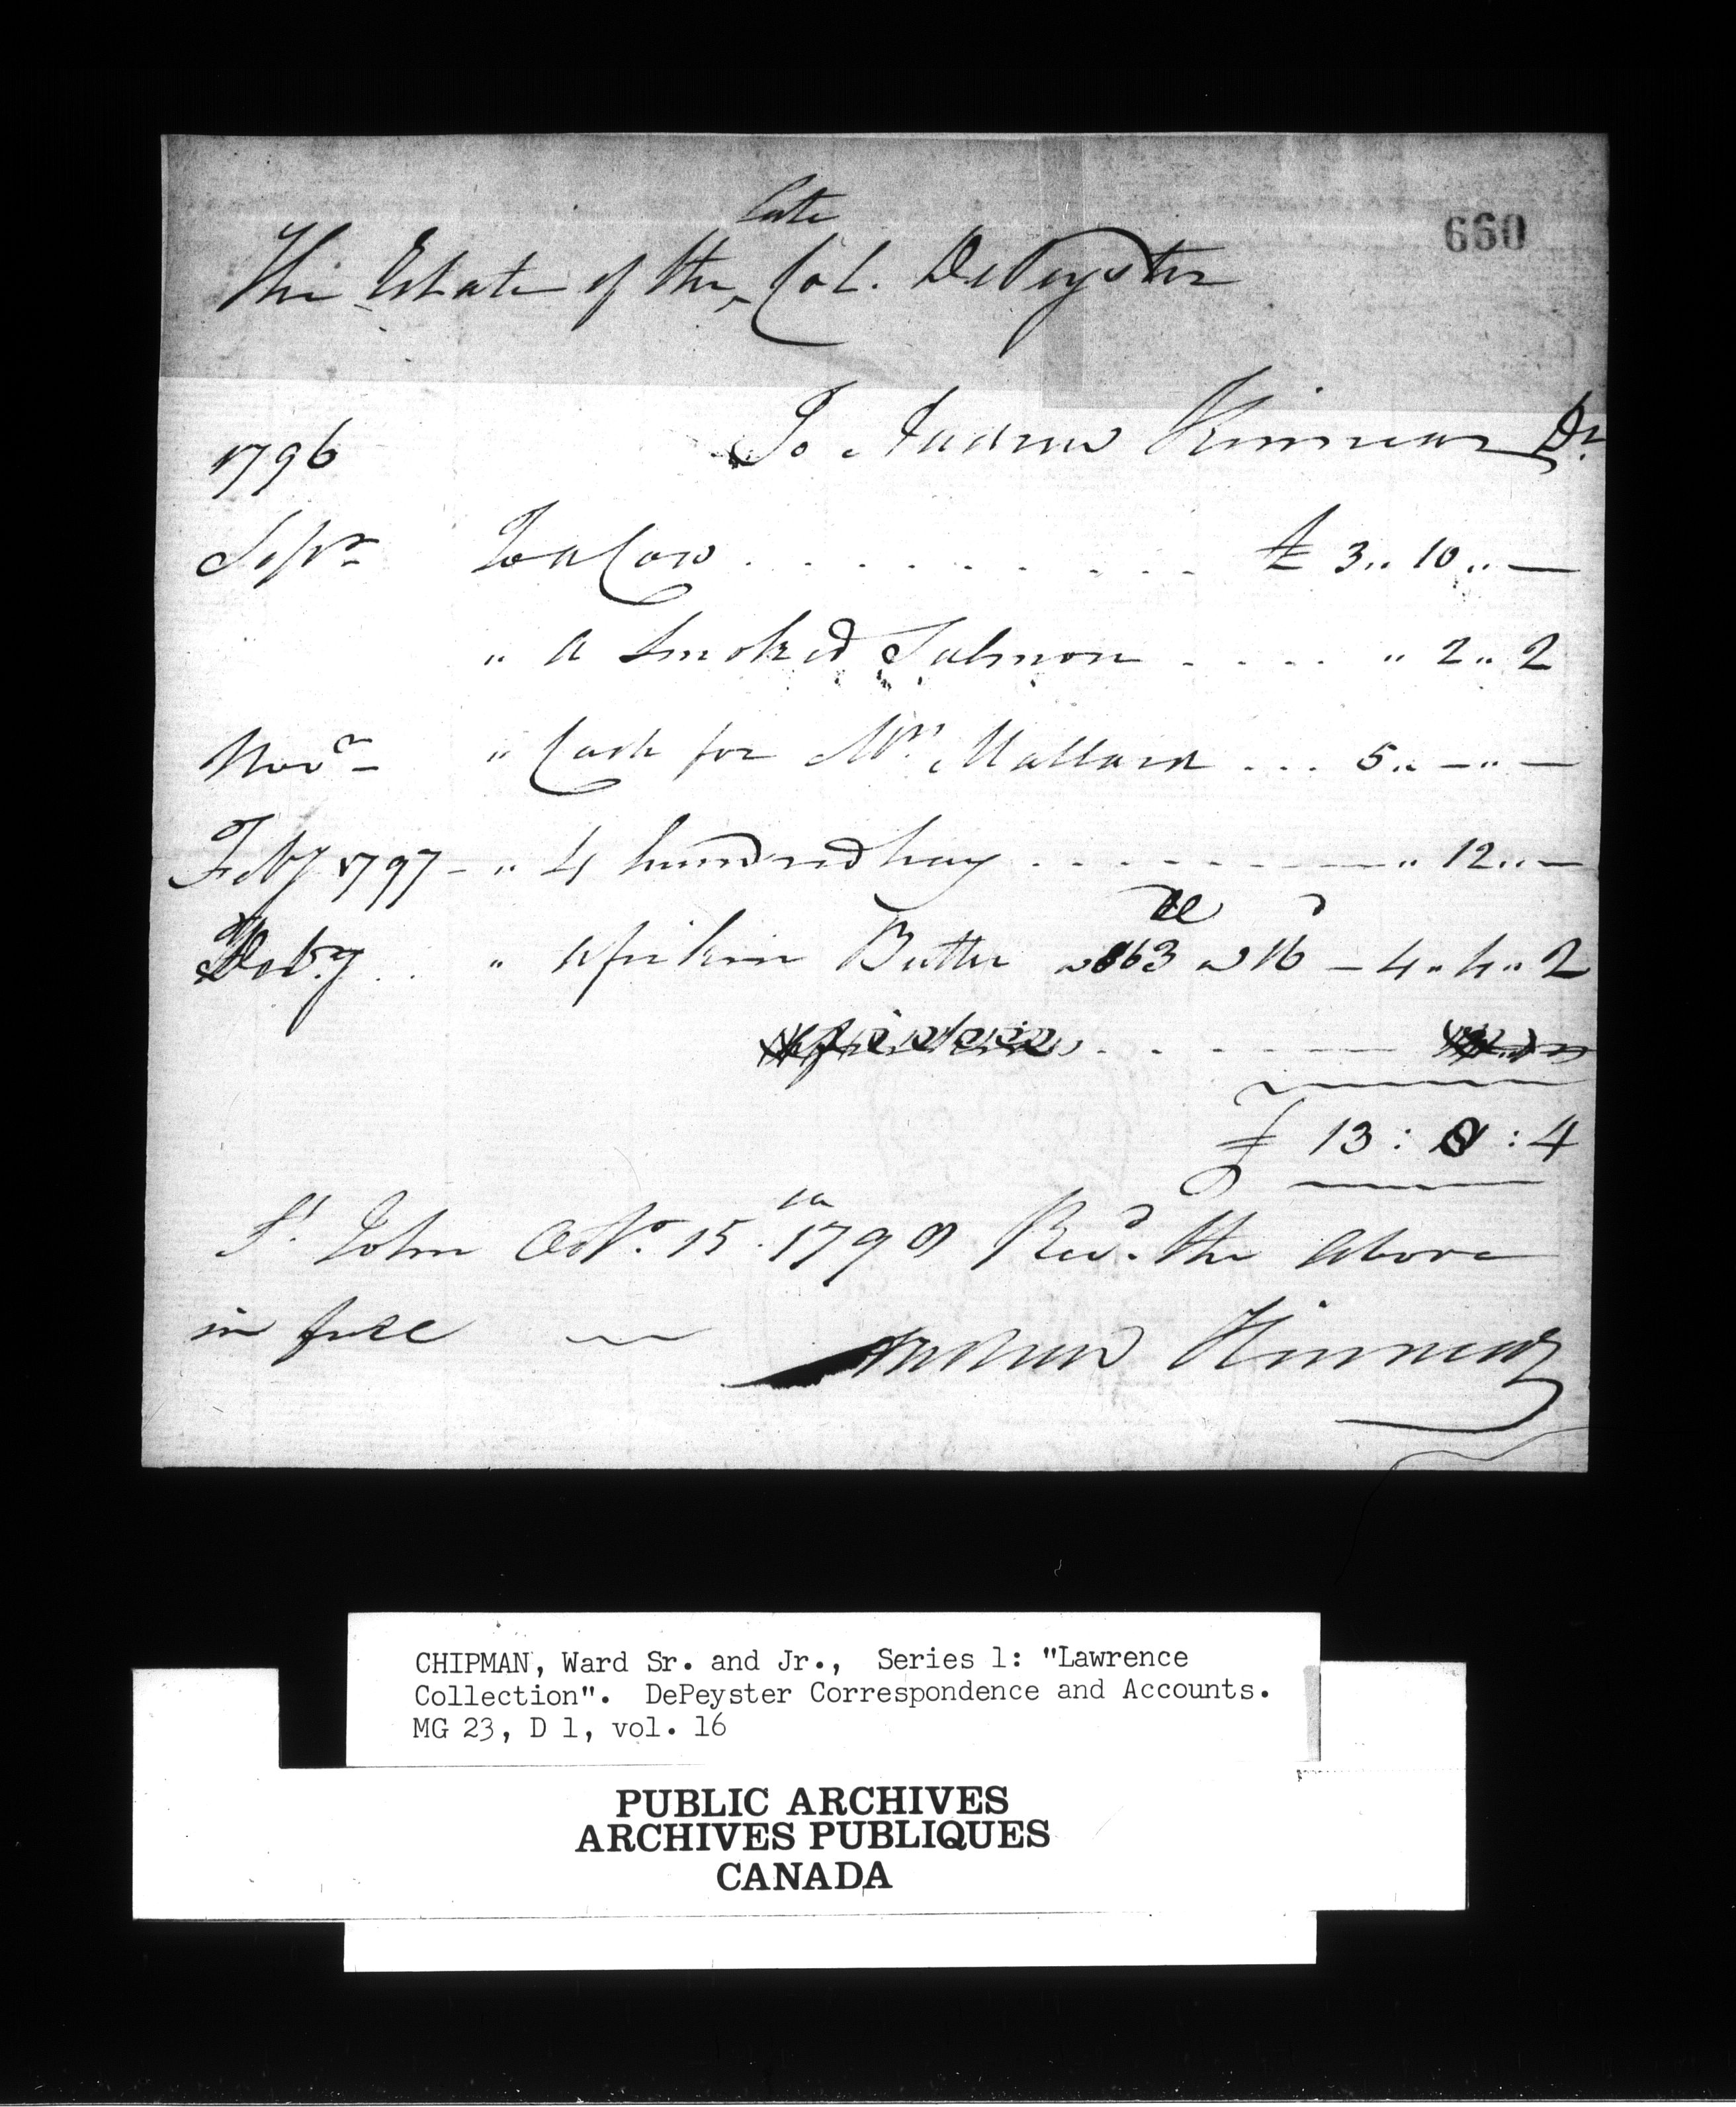 660
The Estate of the late Col. DePeyster
To Andrew Kinnear Dr.
1796
Sepr To a Cow . . . . . . . . . . £ 3 .. 10 .. —
" a Smoked Salmon . . . . " 2 .. 2
Novr " Cash for Mrs. Mallard . . . 5 .. — .. —
Feby 1797 — " 4 hundred hay . . . . . . . " 12 .. —
" a firkin Butter 63 16d — 4 .. 4 .. 2
£ 13 : 8 : 4
St. John Octr. 15th 1798 Recd. the above
in full Andrew Kinnear
CHIPMAN, Ward Sr. and Jr., Series 1: "Lawrence
Collection". DePeyster Correspondence and Accounts.
MG 23, D 1, vol. 16
PUBLIC ARCHIVES
ARCHIVES PUBLIQUES
CANADA